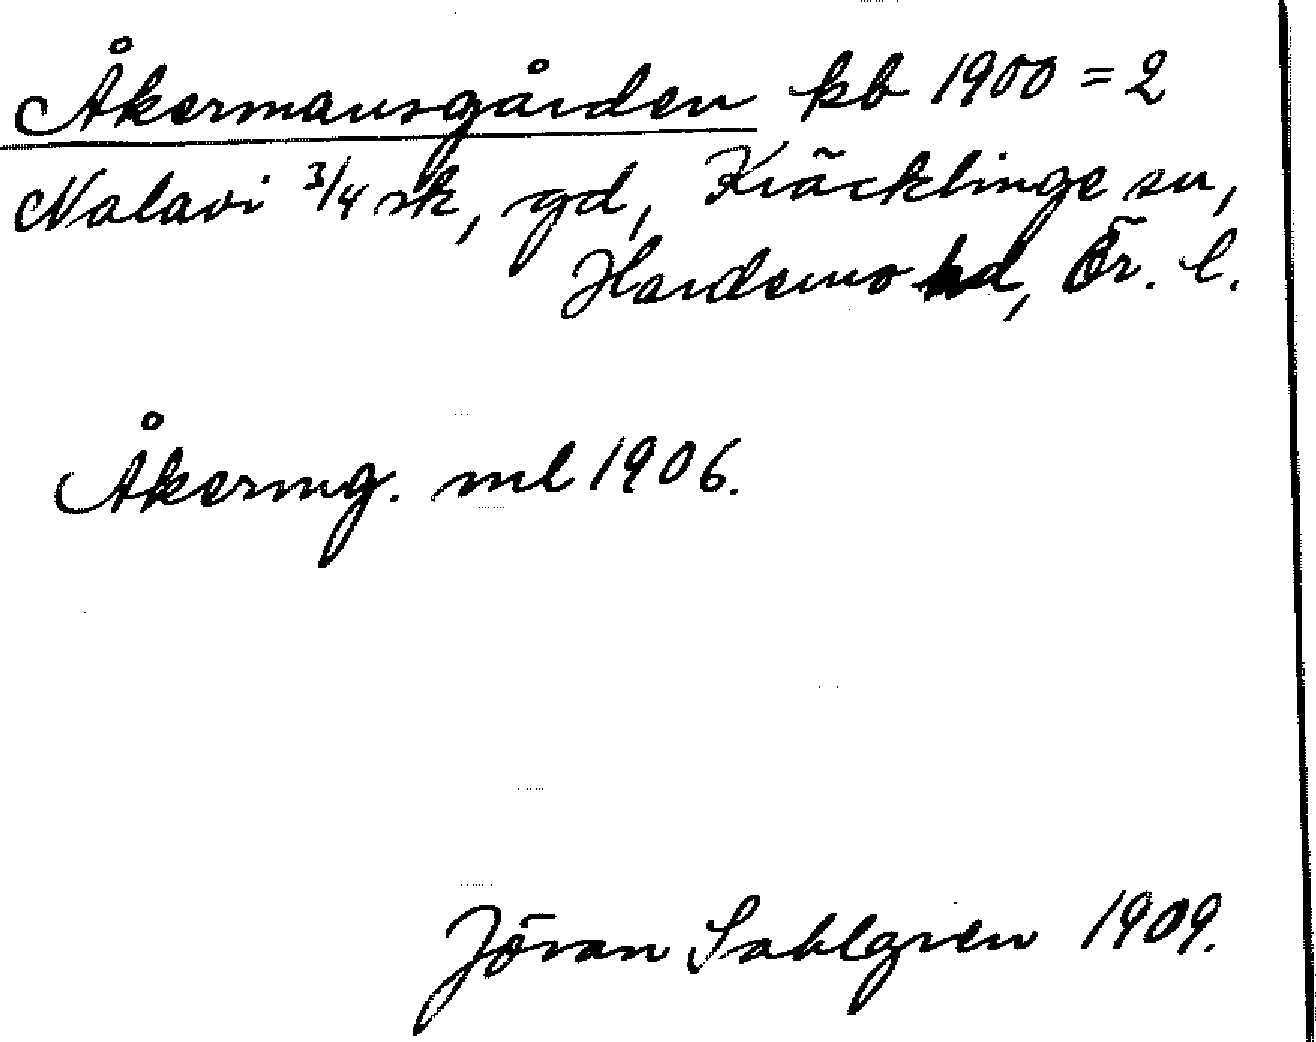 Åkermansgården kb 1900 = 2
Nalavi 3/4 sk, gd, Kräcklinge sn,
Hardemo hd, Ör. l.
Åkermg. ml 1906.
Jöran Sahlgren 1909.